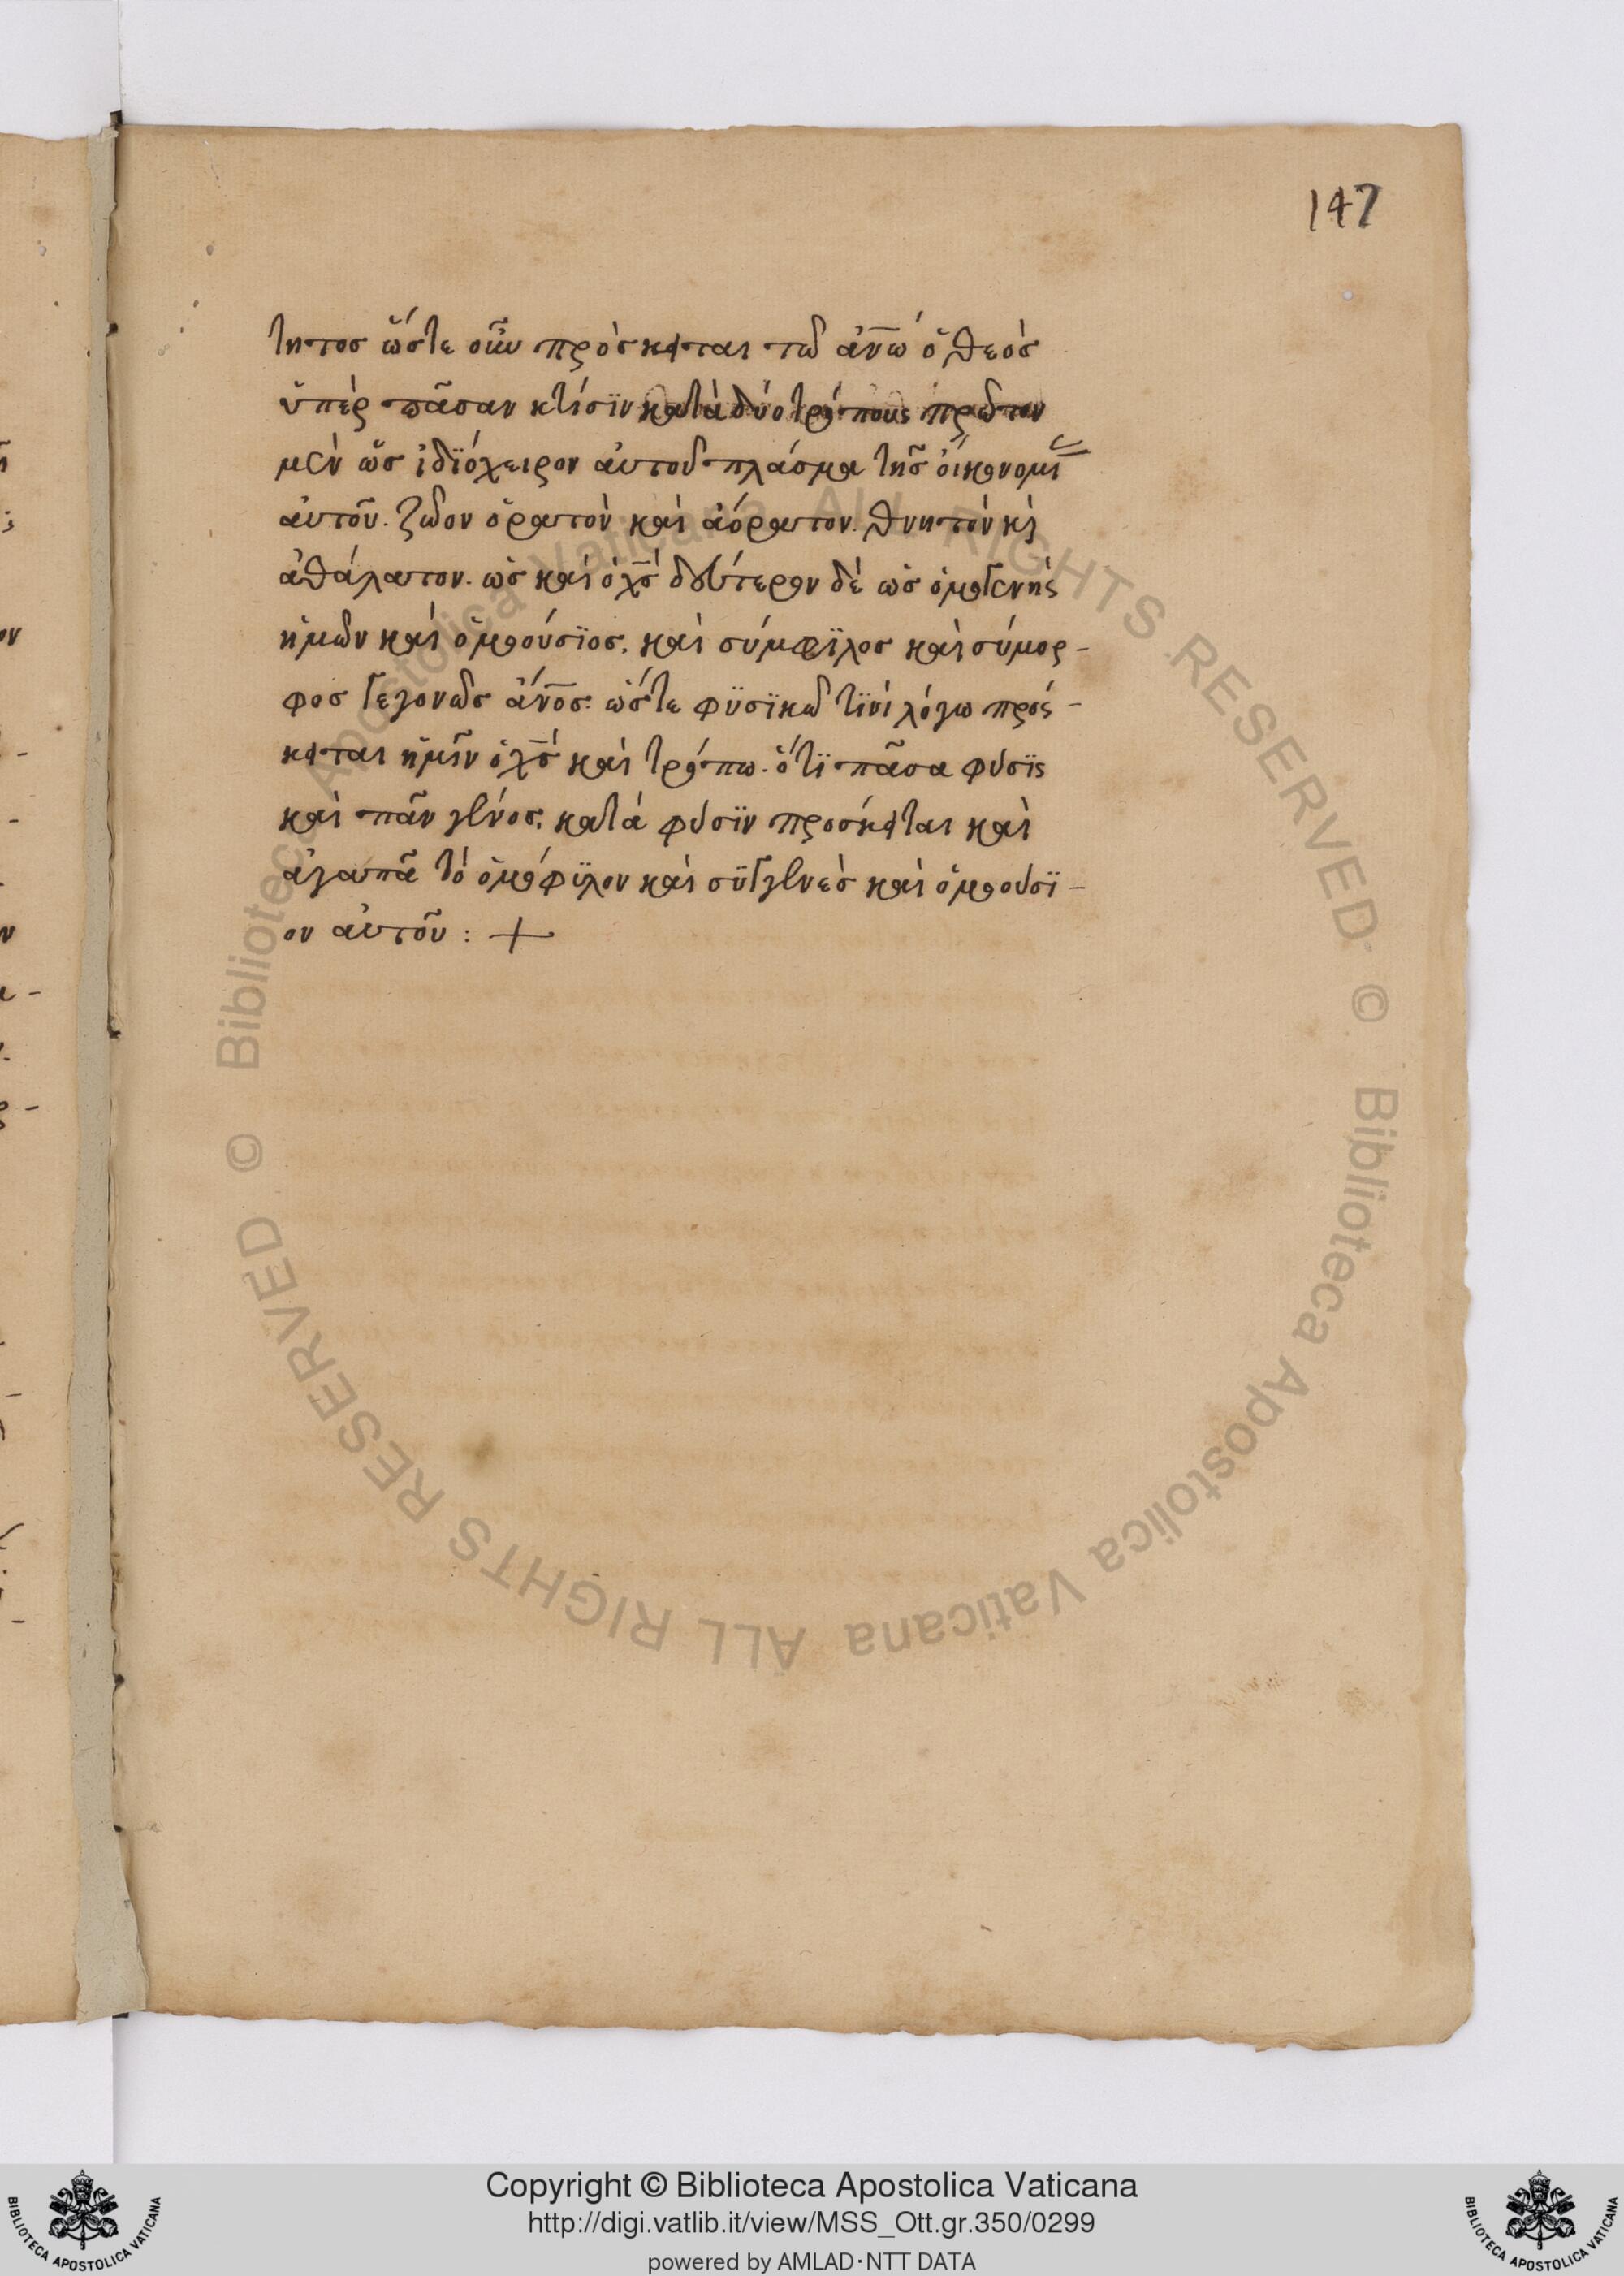 147
τητος ὥστε οὖν πρόσκειται τῶ ἀνω ὁ θεὸς
ὑπὲρ πᾶσαν κτίσϊν κατὰ δύο τρόπους πρῶτον
μὲν ὡς ἰδϊόχειρον ἀυτοῦ πλάσμα τῆς ὀικονομι
ἀυτοῦ. ζῶον ὁρατὸν καὶ ἀόρατον. θνητὸν κὶ
ἀθάνατον. ὡς καὶ ὁ χς δεύτερον δὲ ὡς ὁμογενὴς
ἡμῶν καὶ ὁμοούσϊος. καὶ σύμφϋλος καὶ σύμορ-
φος γεγονῶς ἄνος. ὥστε φϋσϊκῶ τϊνὶ λόγω πρόσ-
κειται ἡμῖν ὁ χς καὶ τρόπω. ὅτϊ πᾶσα φύσϊς
καὶ πᾶν γένος. κατὰ φύσϊν προσκειται καὶ
ἀγαπᾶ τὸ ὁμόφϋλον καὶ σϋγγενὲς καὶ ὁμοούσϊ-
ον ἀυτοῦ : +
© Biblioteca Apostolica Vaticana ALL RIGHTS RESERVED © Biblioteca Apostolica Vaticana ALL RIGHTS RESERVED
Copyright © Biblioteca Apostolica Vaticana
http://digi.vatlib.it/view/MSS_Ott.gr.350/0299
powered by AMLAD·NTT DATA
BIBLIOTECA APOSTOLICA VATICANA
BIBLIOTECA APOSTOLICA VATICANA